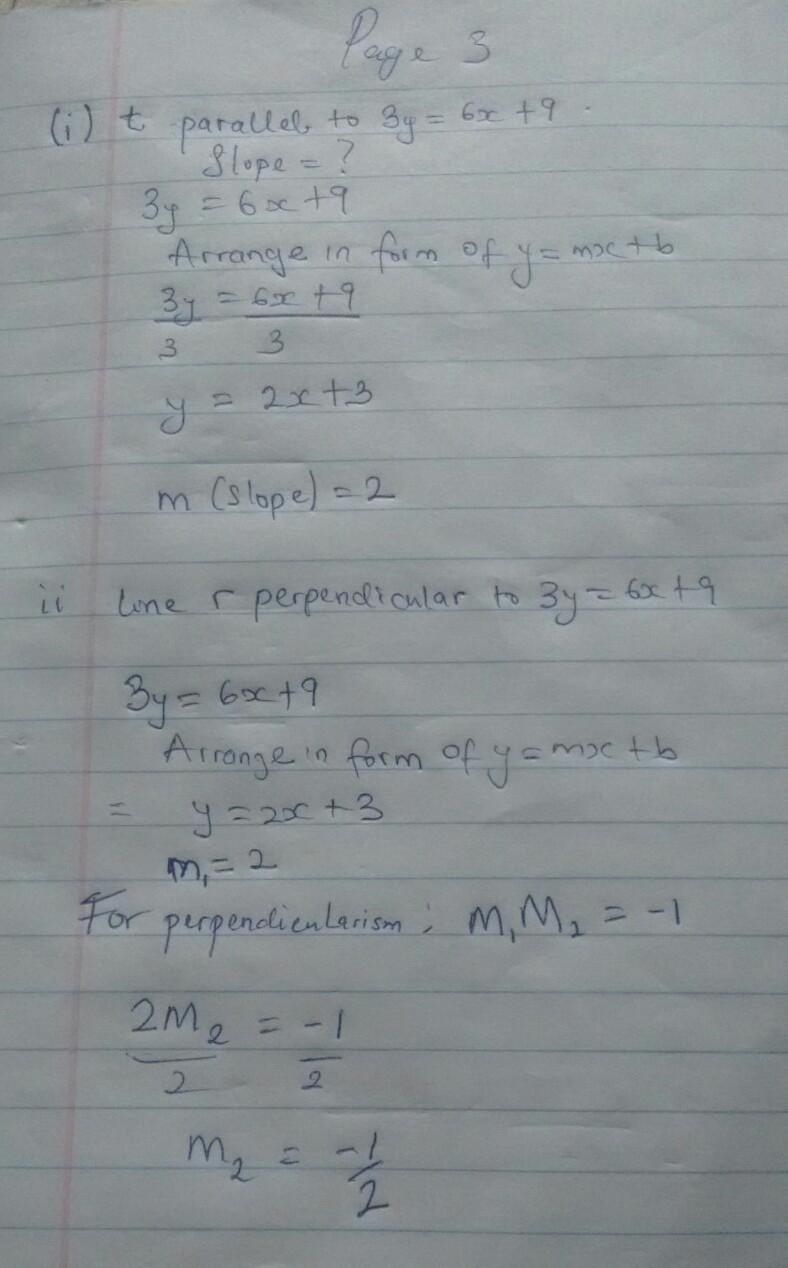 Page 3
(i) t parallel to 3y = 6x +9 .
Slope = ?
3y = 6x +9
Arrange in form of y = mx+b
3y = 6x +9
3 3
y = 2x+3
m (slope) = 2
ii line r perpendicular to 3y = 6x +9
3y = 6x+9
Arrange in form of y=mx +b
= y = 2x +3
m₁ = 2
For perpendicularism ; M₁M₂ = -1
2M₂ = -1
2 2
M₂ = -1/2